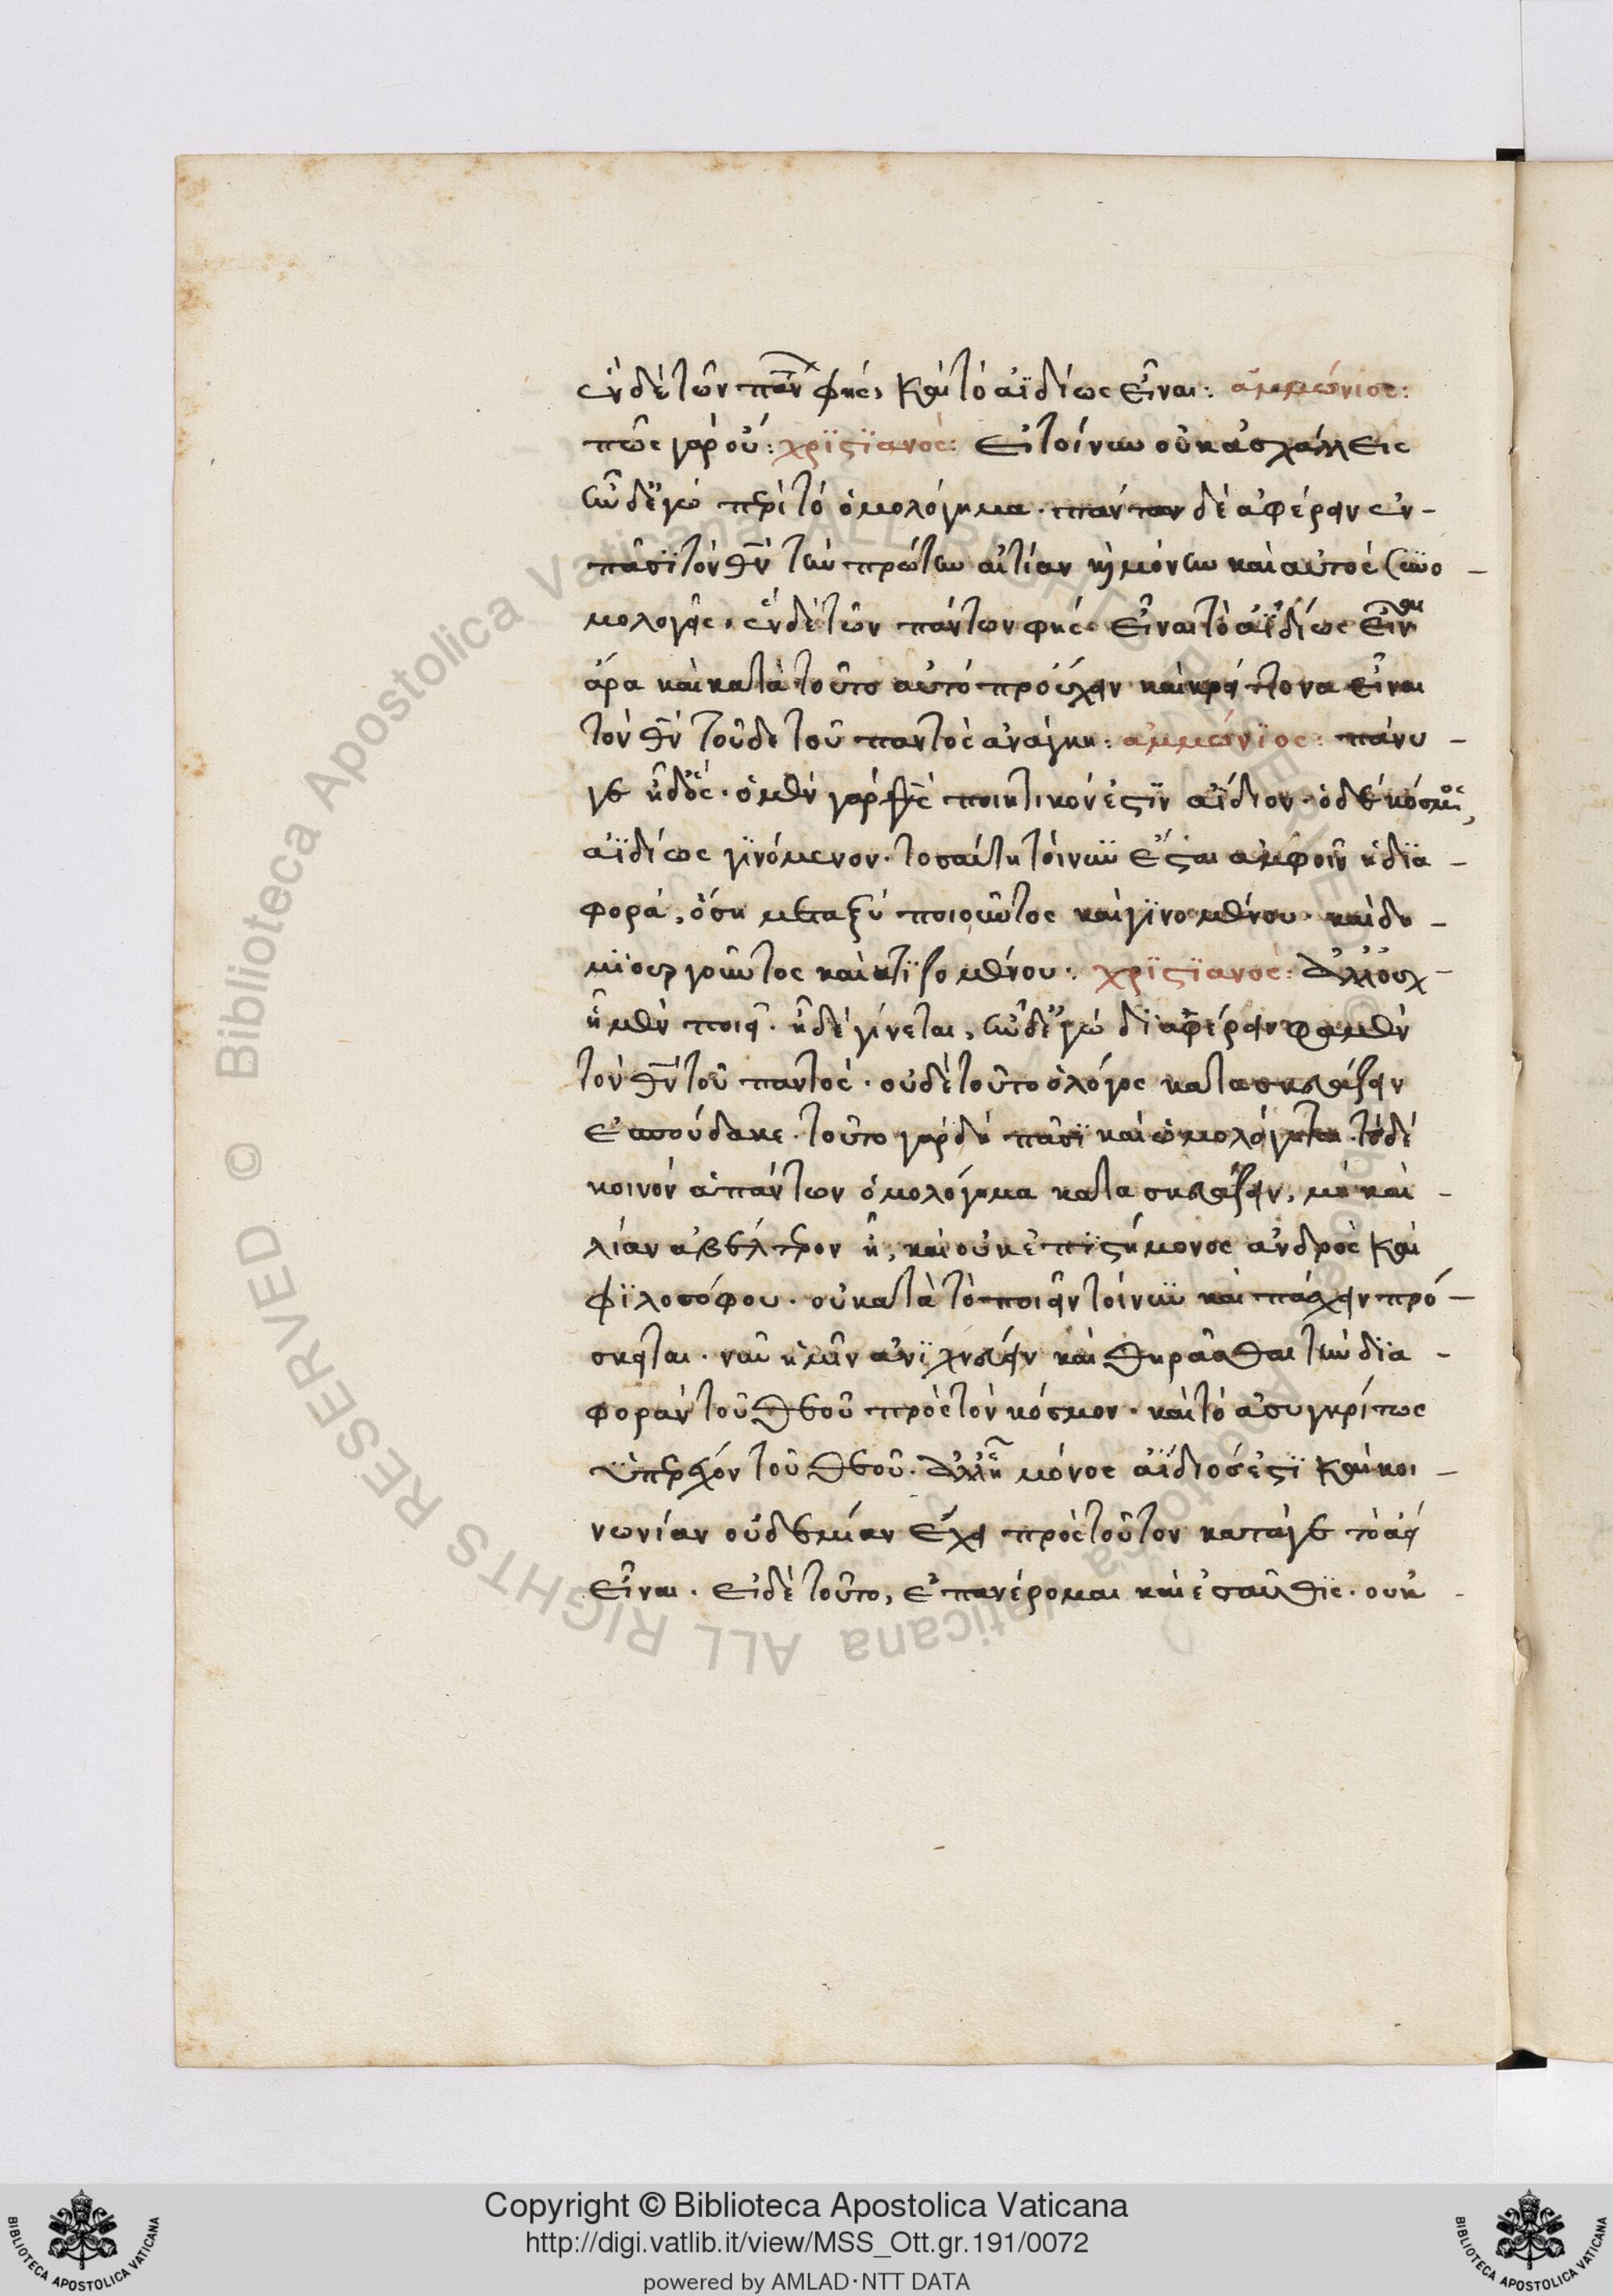 ἓν δὲ τῶν πάν φής, καὶ τὸ ἀϊδίως εἶναι: ἀμμώνιος:
πῶς γὰρ οὔ: χρϊστϊανός: εἰ τοίνυν οὐκ ἀσχάλλεις
ὧδ' ἔχω περὶ τὸ ὁμολόγημα· πάντων δὲ αφέρειν ἐν-
πᾶσϊ τὸν θν τὴν πρώτην αἰτίαν μόνην καὶ αὐτὸς ὁ-
μολογεῖς· ἓν δὲ τῶν πάντων φής· εἶναι τὸ ἀϊδίως εἶναι
ἄρα καὶ κατὰ τοῦτο αὐτὸ προὔχειν καὶ κρείττονα εἶναι
τὸν θν τοῦδε τοῦ παντὸς ἀνάγκη: ἀμμώνϊος: πάνυ -
γε ἡδός· ὁ μὲν γὰρ θς ποιητικόν ἐστϊν ἀΐδιον· ὁ δὲ κόσμος,
ἀϊδίως γϊνόμενον· τοσαύτη τοίνυν ἔσται ἀμφοῖν ἡ δϊα -
φορά, ὅση μεταξὺ ποιοῦντος καὶ γϊνομένου· καὶ δη -
μϊουργοῦντος καὶ κτϊζομένου: χρϊστϊανός: ἀλλ' οὐχ -
ᾗ μὲν ποιεῖ· ᾗ δὲ γίνεται, ὧδ' ἔχω δϊαφέρειν φαμὲν
τὸν θν τοῦ παντός· οὐδὲ τοῦτο ὁ λόγος κατασκευάζειν
ἐσπούδακε· τοῦτο γὰρ δὴ πᾶσϊ καὶ ὡμολόγηται· τὸ δὲ
κοινὸν ἁπάντων ὁμολόγημα κατασκευάζειν, μὴ καὶ -
λίαν ἀβέλτερον ᾖ, καὶ οὐκ ἐπϊστήμονος ἀνδρὸς καὶ
φϊλοσόφου· οὐ κατὰ τὸ ποιεῖν τοίνυν καὶ πάσχειν πρό -
σκειται· νῦν ἡμῖν ἀνϊχνεύειν καὶ θηρᾶσθαι τὴν δϊα -
φορὰν τοῦ θεοῦ πρὸς τὸν κόσμον· καὶ τὸ ἀσυγκρίτως
ὑπερέχον τοῦ θεοῦ· ἀλλ' εἰ μόνος ἀΐδιός ἐστϊ καὶ κοι -
νωνίαν οὐδεμίαν ἔχει πρὸς τοῦτον κατάγε τὸ ἀεὶ
εἶναι· εἰ δὲ τοῦτο, ἐπανέρομαι καὶ ἐσαῦθϊς· οὐκ -
Copyright © Biblioteca Apostolica Vaticana
http://digi.vatlib.it/view/MSS_Ott.gr.191/0072
powered by AMLAD·NTT DATA
© Biblioteca Apostolica Vaticana ALL RIGHTS RESERVED
© Biblioteca Apostolica Vaticana ALL RIGHTS RESERVED
BIBLIOTECA APOSTOLICA VATICANA
BIBLIOTECA APOSTOLICA VATICANA